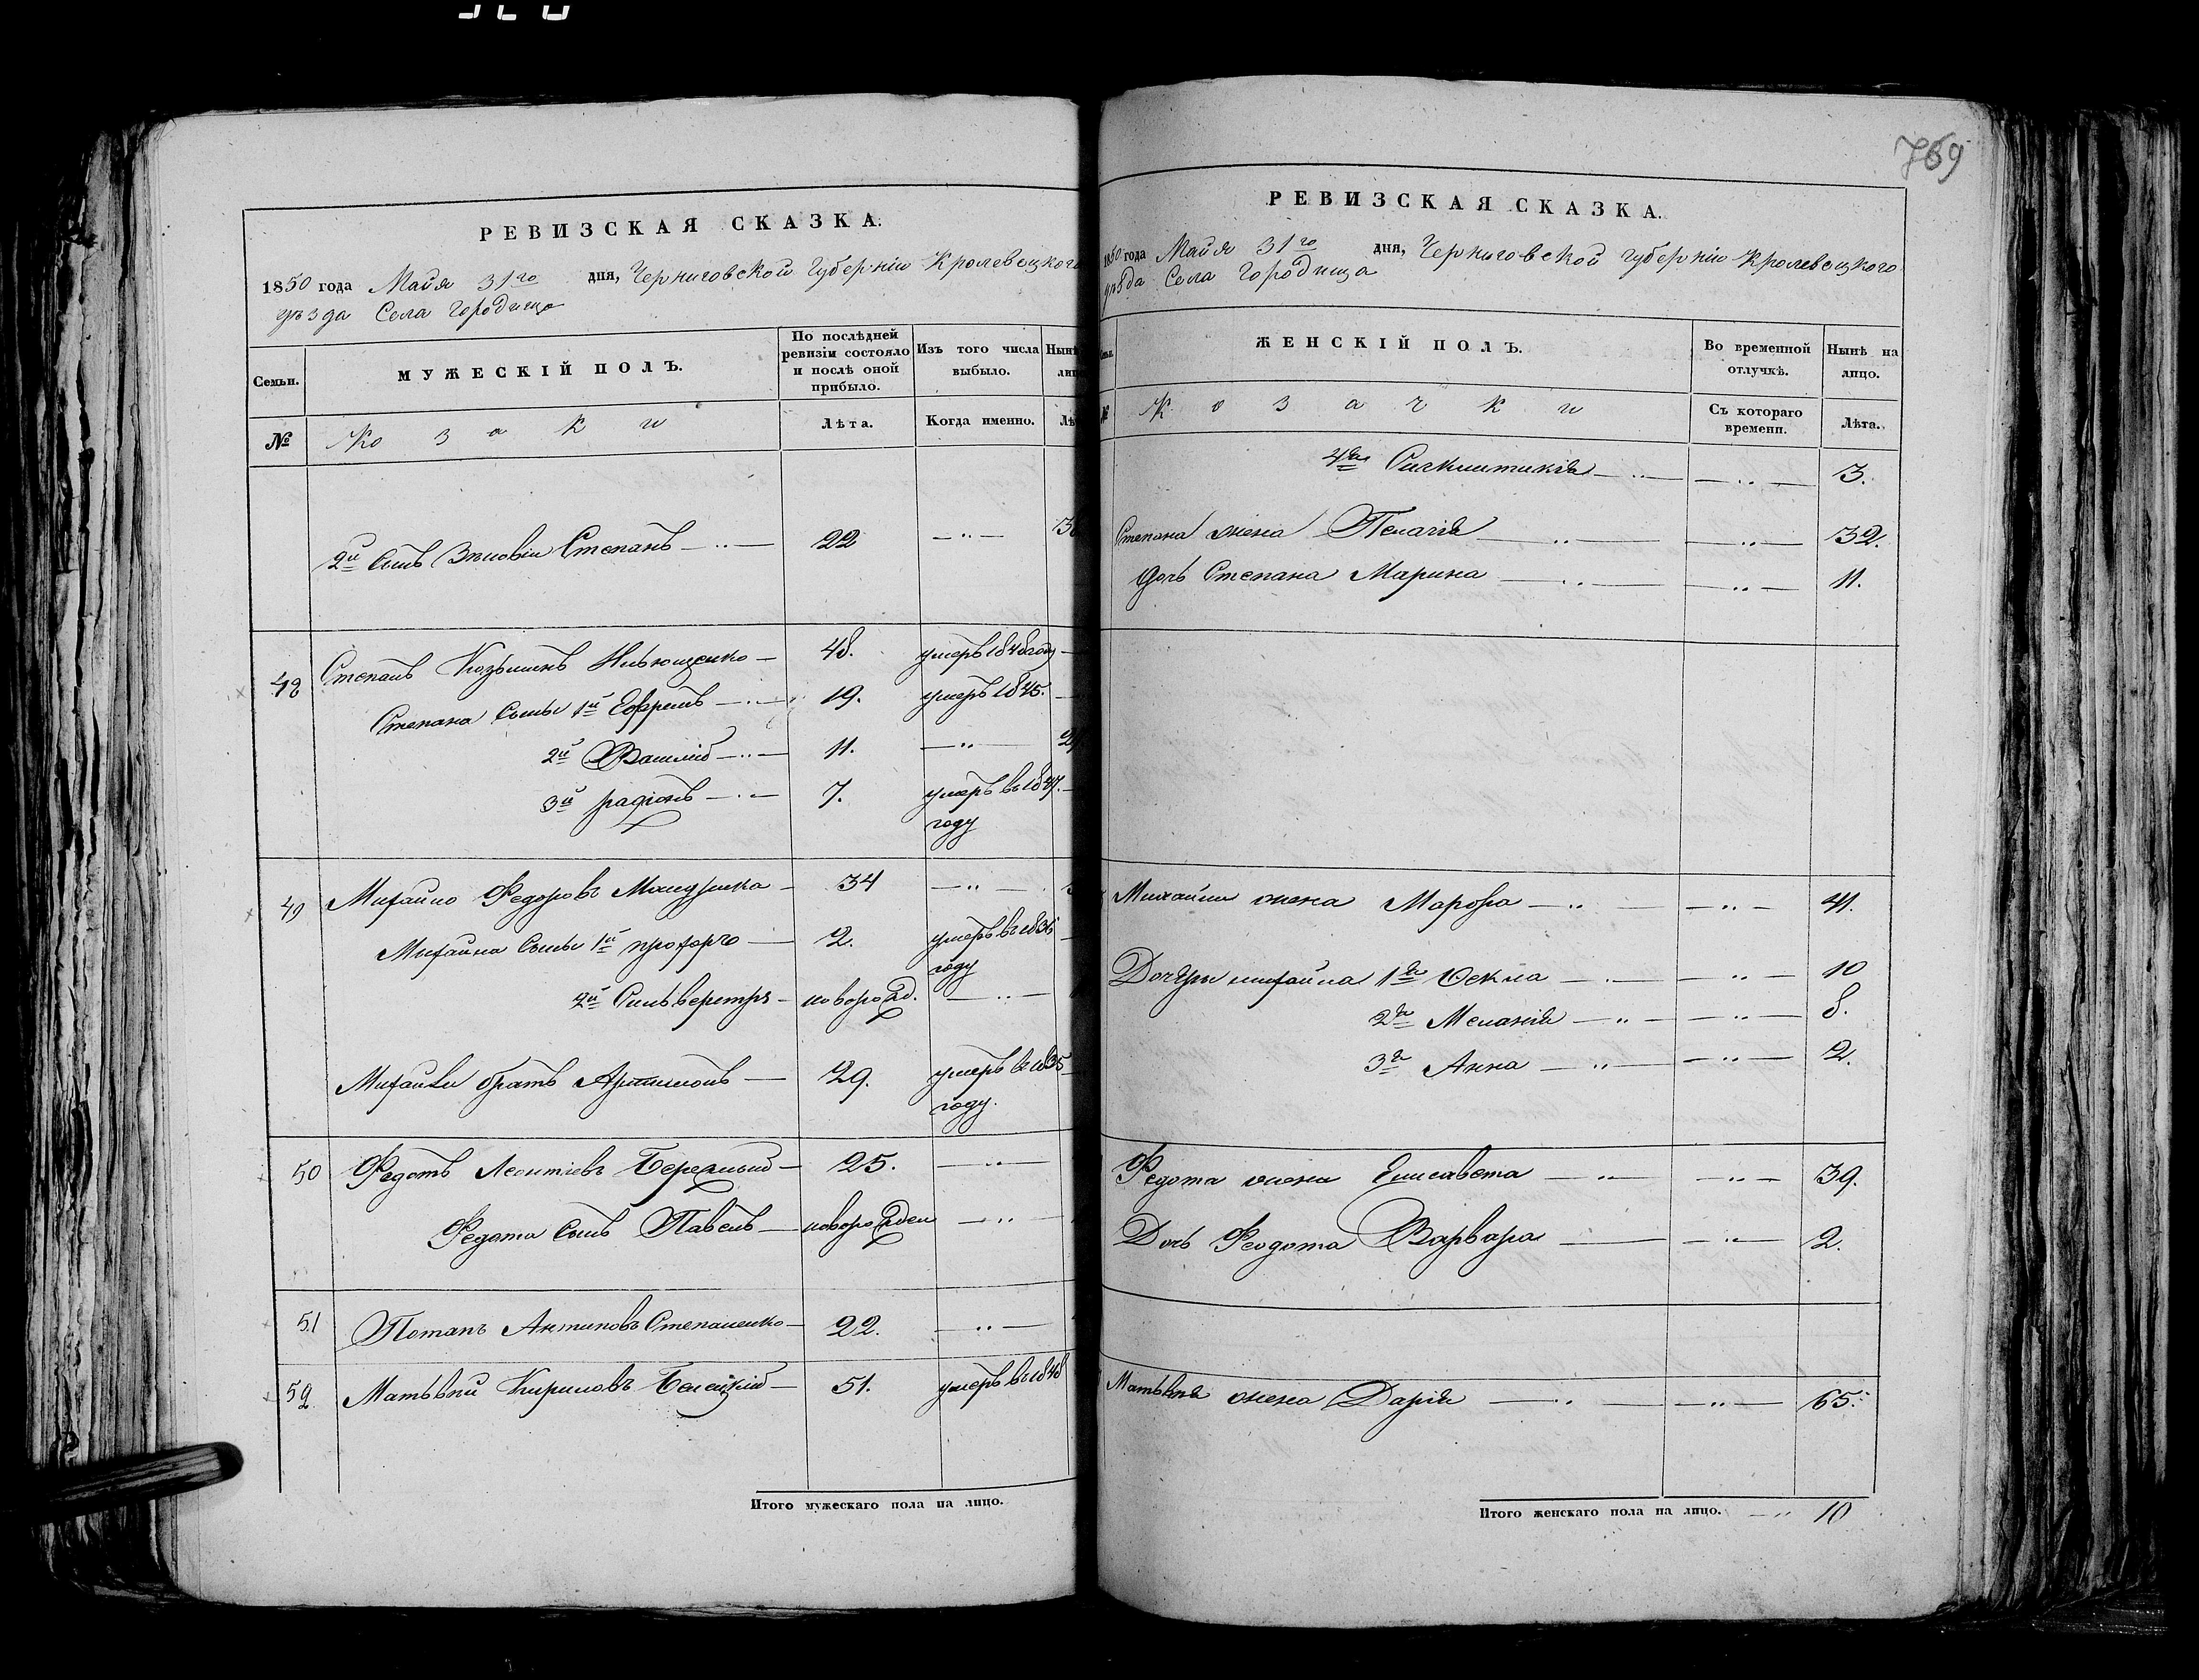 769
РЕВИЗСКАЯ СКАЗКА.
1850 года Майя 31го дня, Черниговской Губерніи Кролевецкого
уѣзда Села Городища
Семьи.
МУЖЕСКІЙ ПОЛЪ.
По послѣдней ревизіи состояло и послѣ оной прибыло.
Изъ того числа выбыло.
№
Козаки
Лѣта.
Когда именно.
2й Сынъ Степанъ — 22 —
48 Степанъ 48. умеръ 1848 году
Степана Сыны 1й 19. умеръ 1845.
2й Василій — 11. —
3й Радіонъ — 7. умеръ въ 1847.
году
49 Михайло Федоровъ 34 —
Михайла Сыны 1й 2. умеръ въ 1836
году
2й Сильверстръ — новорожд. —
Михайлы братъ 29. умеръ въ 1835
году.
50 Федотъ Леонтіевъ 25. —
Федота Сынъ Павелъ — новорожден —
51 Потапъ Антиповъ Степаненко — 22. —
52 Матьвѣй Кириловъ Белецкій — 51. умеръ въ 1848
Итого мужескаго пола на лицо.
РЕВИЗСКАЯ СКАЗКА.
1850 года Майя 31го дня, Черниговской Губерніи Кролевецкого
уѣзда Села Городища
ЖЕНСКІЙ ПОЛЪ.
Во временной отлучкѣ.
Нынѣ на лицо.
№
Козачки
Съ котораго времени.
Лѣта.
4я — 3.
Степана жена Пелагія — 32.
Дочь Степана Марина — 11.
Михайлы жена Марфа — 41.
Дочери михайла 1я Фекла — 10
2я Меланія — 8.
3я Анна — 2.
Федота жена Елисавета — 39.
Дочь Феодота Варвара — 2.
Матьвѣя жена Дарія — 65.
Итого женскаго пола на лицо. — 10